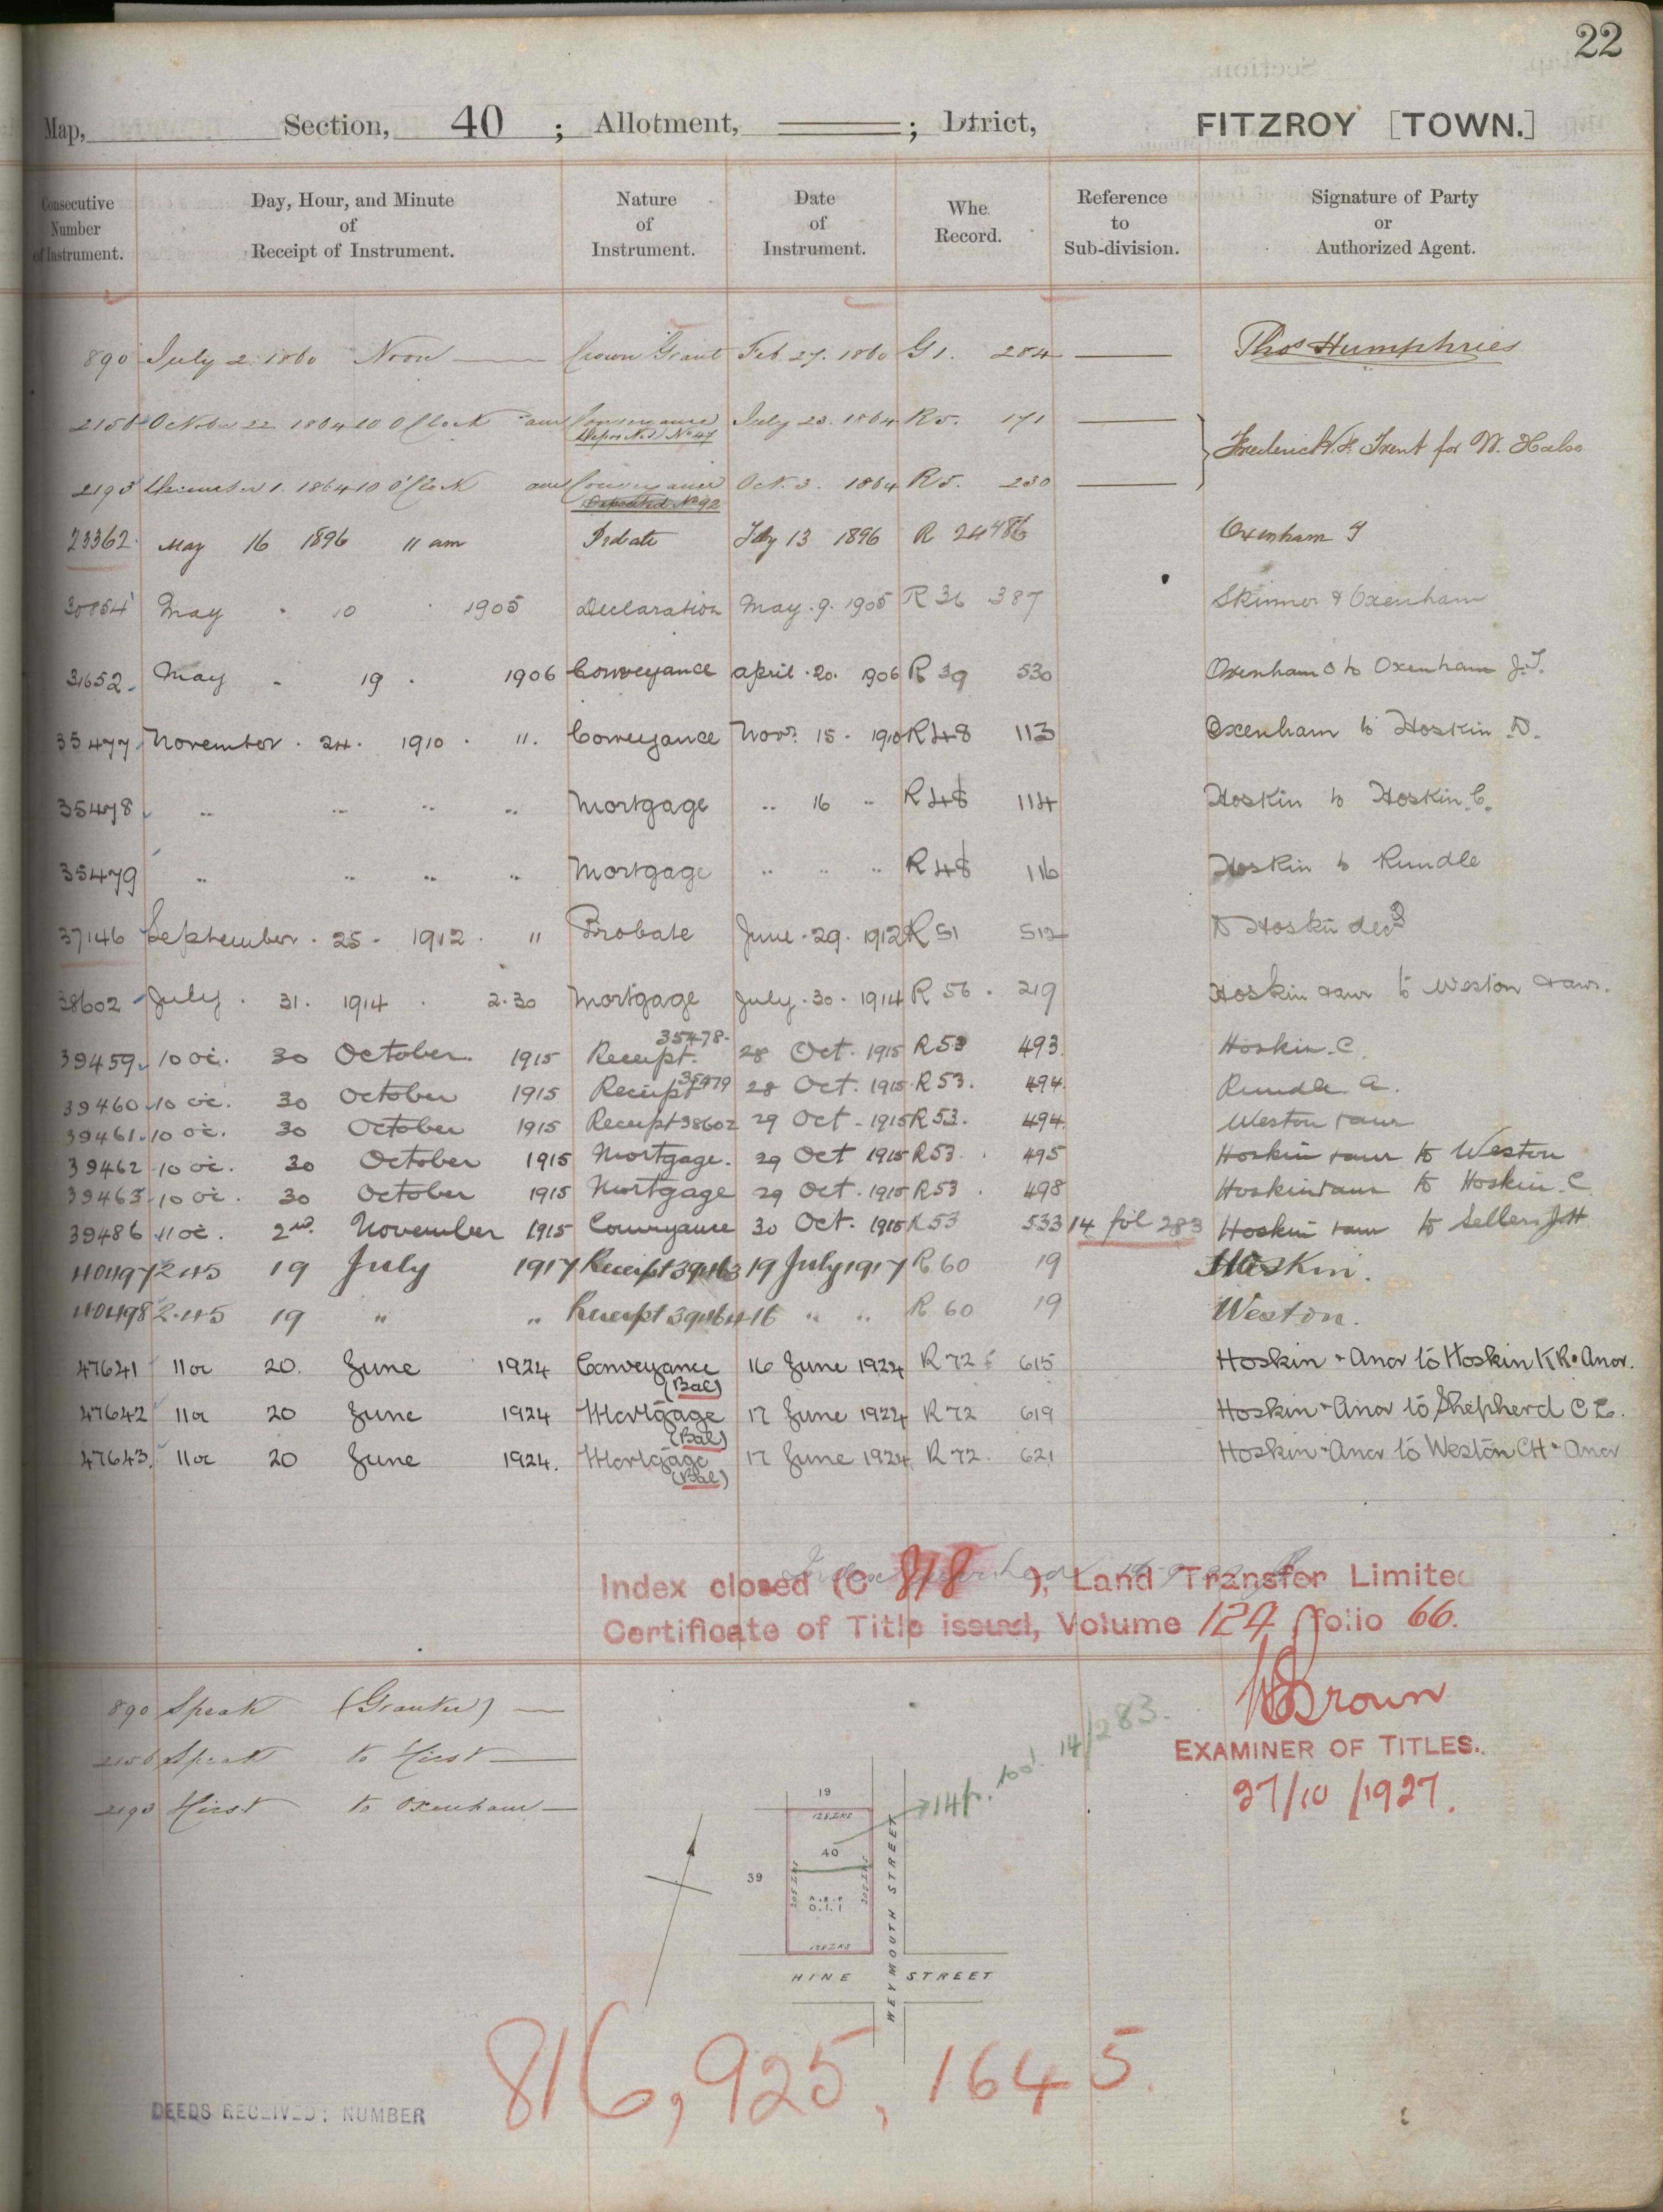 22
Map, Section, 40 ; Allotment, ; District, FITZROY [TOWN.]
Consecutive Number of Instrument. Day, Hour, and Minute of Receipt of Instrument. Nature of Instrument. Date of Instrument. Whe Record. Reference to Sub-division. Signature of Party or Authorized Agent.
890 July 2. 1860 Noon Crown Grant Feb. 27. 1860 G 1. 284 Thos Humphries
2156 October 22 1864 10 O'Clock am Conveyance July 23. 1864 R5. 171
Deposited No 47
Frederick for W. Halse
2193 December 1. 1864 10 O'Clock am Conveyance Oct. 3. 1864 R5. 230
Deposited No 92
23362 May 16 1896 11 am Probate Feby 13 1896 R 24 486 Oxenham T
30854 May " 10 " 1905 Declaration May. 9. 1905 R 36 387 Skinner & Oxenham
31652. May 19. 1906 Conveyance April. 20. 1906 R 39 530 Oxenham O to Oxenham J.T.
35477 November. 24. 1910. 11. Conveyance Novr. 15. 1910 R48 113 Oxenham to Hoskin D.
35478 " " " " Mortgage " 16 " R48 114 Hoskin to Hoskin C.
35479 " " " " Mortgage " " " R48 116 Hoskin to Rundle
37146 September. 25. 1912. 11 Probate June. 29. 1912 R 51 512 D Hoskin decd
38602 July. 31. 1914. 2.30 Mortgage July. 30. 1914 R 56. 219 Hoskin & anr to Weston & anr.
39459 10 oc. 30 October. 1915 Receipt 35478. 28 Oct. 1915 R53 493 Hoskin. C.
39460 10 oc. 30 October 1915 Receipt 35479 28 Oct. 1915 R53. 494 Rundle A.
39461 10 oc. 30 October 1915 Receipt 38602 29 Oct. 1915 R53. 494 Weston & anr
39462 10 oc. 30 October 1915 Mortgage. 29 Oct 1915 R53. 495 Hoskin & anr to Weston
39463 10 oc. 30 October 1915 Mortgage 29 Oct. 1915 R53. 498 Hoskin & anr to Hoskin. C
39486 11 oc. 2nd. November 1915 Conveyance 30 Oct. 1915 R53 533 14 fol 283 Hoskin & anr to Sellers J.H
40497 2.45 19 July 1917 Receipt 39463 19 July 1917 R 60 19 Hoskin.
40498 2.45 19 " " Receipt 39464 16 " " R 60 19 Weston.
47641 11 oc 20. June 1924 Conveyance 16 June 1924 R 72 615 Hoskin & Anor to Hoskin K R & Anor.
(Bal)
47642 11 oc 20 June 1924 Mortgage 17 June 1924 R 72 619 Hoskin & Anor to Shepherd C E.
(Bal)
47643. 11 oc 20 June 1924. Mortgage 17 June 1924 R 72. 621 Hoskin & Anor to Weston CH & Anor
(Bal)
Index closed (C 818 ), Land Transfer Limited
Certificate of Title issued, Volume 124, folio 66.
Brown
EXAMINER OF TITLES.
27/10/1927.
890 Speak (Grantee)
2156 Speak to Hirst
2193 Hirst to Oxenham
14 p. 14/283.
19
128 LKS
40
39
205 LKS
205 LKS
A. R. P
0. 1. 1
128 LKS
WEYMOUTH STREET
HINE STREET
816, 925, 1645.
DEEDS RECEIVED: NUMBER